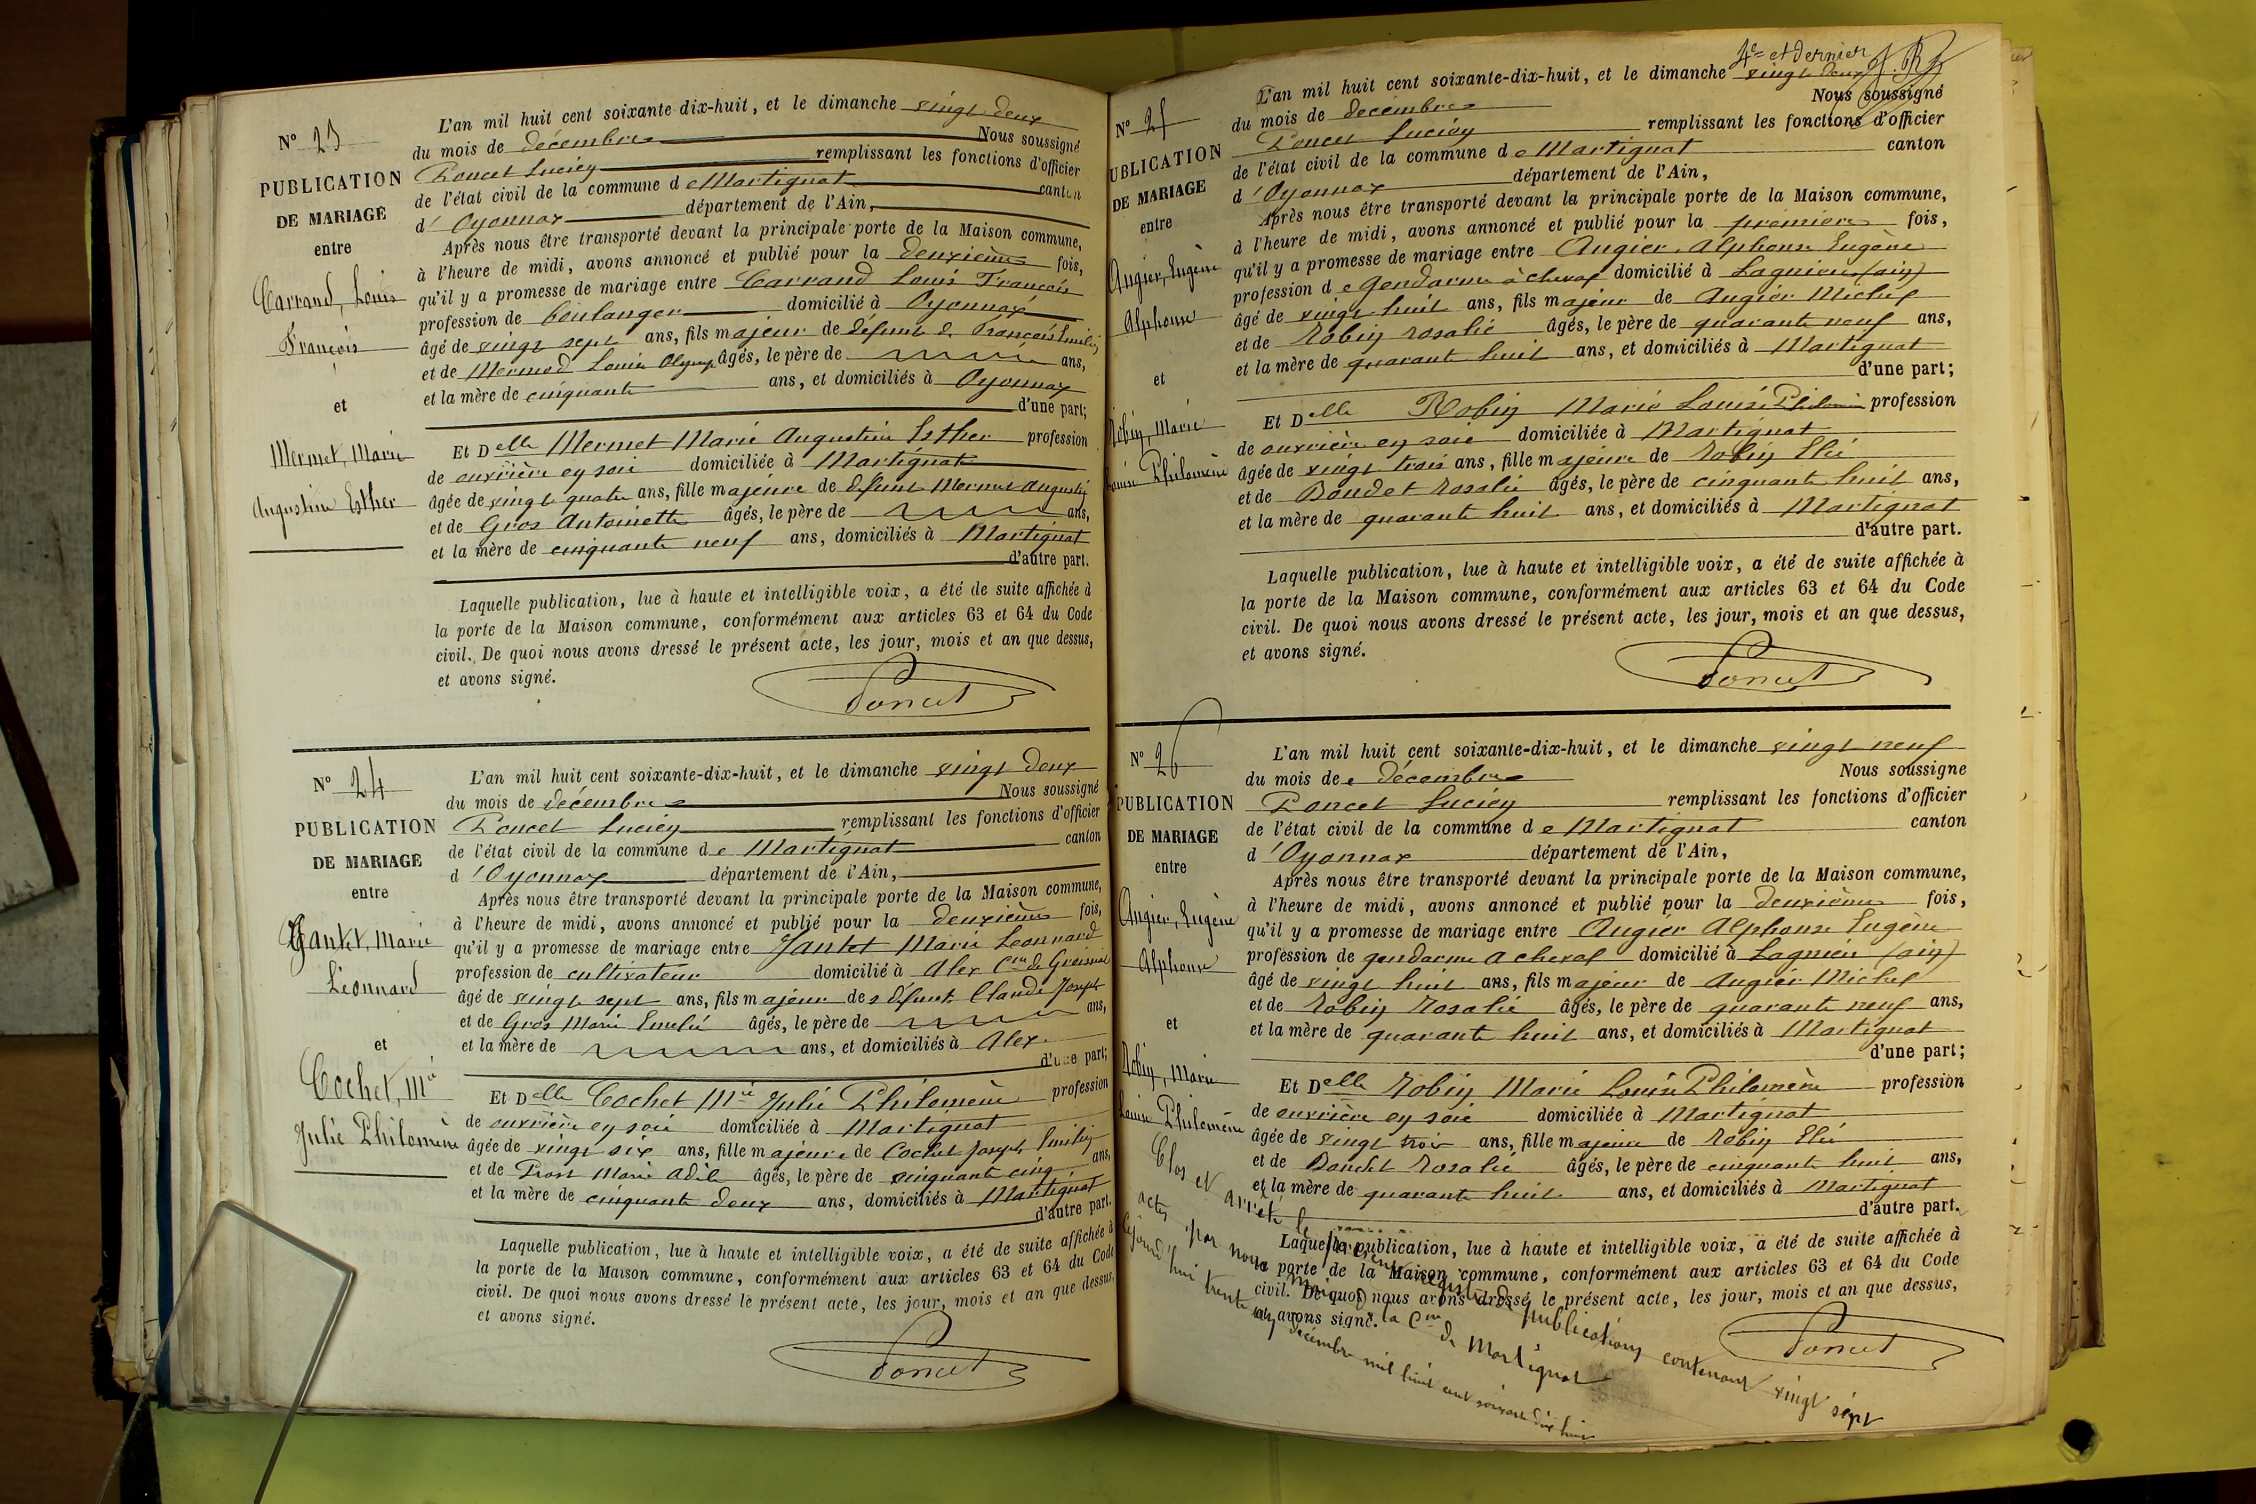 N° 23
PUBLICATION
DE MARIAGE
entre
Carrand, Louis
François
et
Mermet, Marie
Augustine Esther
L'an mil huit cent soixante-dix-huit, et le dimanche vingt deux
du mois de décembre Nous soussigné
Poncet Lucien remplissant les fonctions d'officier
de l'état civil de la commune de Martignat canton
d'Oyonnax département de l'Ain,
Après nous être transporté devant la principale porte de la Maison commune,
à l'heure de midi, avons annoncé et publié pour la deuxième fois,
qu'il y a promesse de mariage entre Carrand Louis François
profession de boulanger domicilié à Oyonnax
âgé de vingt sept ans, fils majeur de défunt François Emilien
et de Mermod Louise Olympe âgés, le père de ans,
et la mère de cinquante ans, et domiciliés à Oyonnax
d'une part;
Et Delle Mermet Marie Augustine Esther profession
de ouvrière en soie domiciliée à Martignat
âgée de vingt quatre ans, fille majeure de défunt Mermet Augustin
et de Gros Antoinette âgés, le père de ans,
et la mère de cinquante neuf ans, domiciliés à Martignat
d'autre part.
Laquelle publication, lue à haute et intelligible voix, a été de suite affichée à
la porte de la Maison commune, conformément aux articles 63 et 64 du Code
civil. De quoi nous avons dressé le présent acte, les jour, mois et an que dessus,
et avons signé.
Poncet
N° 24
PUBLICATION
DE MARIAGE
entre
Jantet, Marie
Léonnard
et
Cochet, Mie
Julie Philomène
L'an mil huit cent soixante-dix-huit, et le dimanche vingt deux
du mois de décembre Nous soussigné
Poncet Lucien remplissant les fonctions d'officier
de l'état civil de la commune de Martignat canton
d'Oyonnax département de l'Ain,
Après nous être transporté devant la principale porte de la Maison commune,
à l'heure de midi, avons annoncé et publié pour la deuxième fois,
qu'il y a promesse de mariage entre Jantet Marie Leonnard
profession de cultivateur domicilié à Alex Cne de Groissiat
âgé de vingt sept ans, fils majeur des défunts Claude Joseph
et de Gros Marie Emelie âgés, le père de ans,
et la mère de ans, et domiciliés à Alex
d'une part;
Et Delle Cochet Mie Julie Philomène profession
de ouvrière en soie domiciliée à Martignat
âgée de vingt six ans, fille majeure de Cochet Joseph Emilien
et de Prost Marie Adèle âgés, le père de cinquante cinq ans,
et la mère de cinquante deux ans, domiciliés à Martignat
d'autre part.
Laquelle publication, lue à haute et intelligible voix, a été de suite affichée à
la porte de la Maison commune, conformément aux articles 63 et 64 du Code
civil. De quoi nous avons dressé le présent acte, les jour, mois et an que dessus,
et avons signé.
Poncet
4e et dernier
N° 25
PUBLICATION
DE MARIAGE
entre
Augier, Eugène
Alphonse
et
Robin, Marie
Louise Philomène
L'an mil huit cent soixante-dix-huit, et le dimanche vingt deux
du mois de décembre Nous soussigné
Poncet Lucien remplissant les fonctions d'officier
de l'état civil de la commune de Martignat canton
d'Oyonnax département de l'Ain,
Après nous être transporté devant la principale porte de la Maison commune,
à l'heure de midi, avons annoncé et publié pour la première fois,
qu'il y a promesse de mariage entre Augier Alphonse Eugène
profession de gendarme à cheval domicilié à Lagnieu (ain)
âgé de vingt huit ans, fils majeur de Augier Michel
et de Robin Rosalie âgés, le père de quarante neuf ans,
et la mère de quarante huit ans, et domiciliés à Martignat
d'une part;
Et Delle Robin Marie Louise Philomène profession
de ouvrière en soie domiciliée à Martignat
âgée de vingt trois ans, fille majeure de Robin Elie
et de Boudet Rosalie âgés, le père de cinquante huit ans,
et la mère de quarante huit ans, et domiciliés à Martignat
d'autre part.
Laquelle publication, lue à haute et intelligible voix, a été de suite affichée à
la porte de la Maison commune, conformément aux articles 63 et 64 du Code
civil. De quoi nous avons dressé le présent acte, les jour, mois et an que dessus,
et avons signé.
Poncet
N° 26
PUBLICATION
DE MARIAGE
entre
Augier, Eugène
Alphonse
et
Robin, Marie
Louise Philomène
L'an mil huit cent soixante-dix-huit, et le dimanche vingt neuf
du mois de décembre Nous soussigné
Poncet Lucien remplissant les fonctions d'officier
de l'état civil de la commune de Martignat canton
d'Oyonnax département de l'Ain,
Après nous être transporté devant la principale porte de la Maison commune,
à l'heure de midi, avons annoncé et publié pour la deuxième fois,
qu'il y a promesse de mariage entre Augier Alphonse Eugène
profession de gendarme a cheval domicilié à Lagnieu (ain)
âgé de vingt huit ans, fils majeur de Augier Michel
et de Robin Rosalie âgés, le père de quarante neuf ans,
et la mère de quarante huit ans, et domiciliés à Martignat
d'une part;
Et Delle Robin Marie Louise Philomène profession
de ouvrière en soie domiciliée à Martignat
âgée de vingt trois ans, fille majeure de Robin Elie
et de Boudet Rosalie âgés, le père de cinquante huit ans,
et la mère de quarante huit ans, et domiciliés à Martignat
d'autre part.
Laquelle publication, lue à haute et intelligible voix, a été de suite affichée à
la porte de la Maison commune, conformément aux articles 63 et 64 du Code
civil. De quoi nous avons dressé le présent acte, les jour, mois et an que dessus,
et avons signé.
Poncet
Clos et arrêté le présent registre de publications contenant vingt sept
actes par nous Maire de la Cne de Martignat
aujourd'hui trente un décembre mil huit cent soixante dix huit